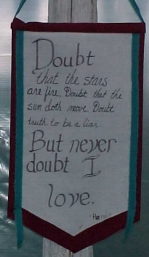 Doubt
that the stars
are fire, Doubt that the
sun doth move. Doubt
truth to be a liar.
But never
doubt I
love.